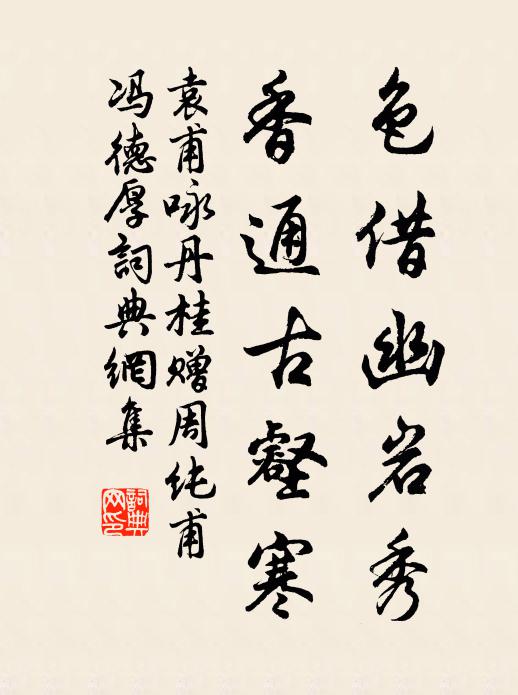 色借幽岩秀
香通古壑寒
袁甫咏丹桂赠周纯甫
冯德厚詞典網集
詞典
网印